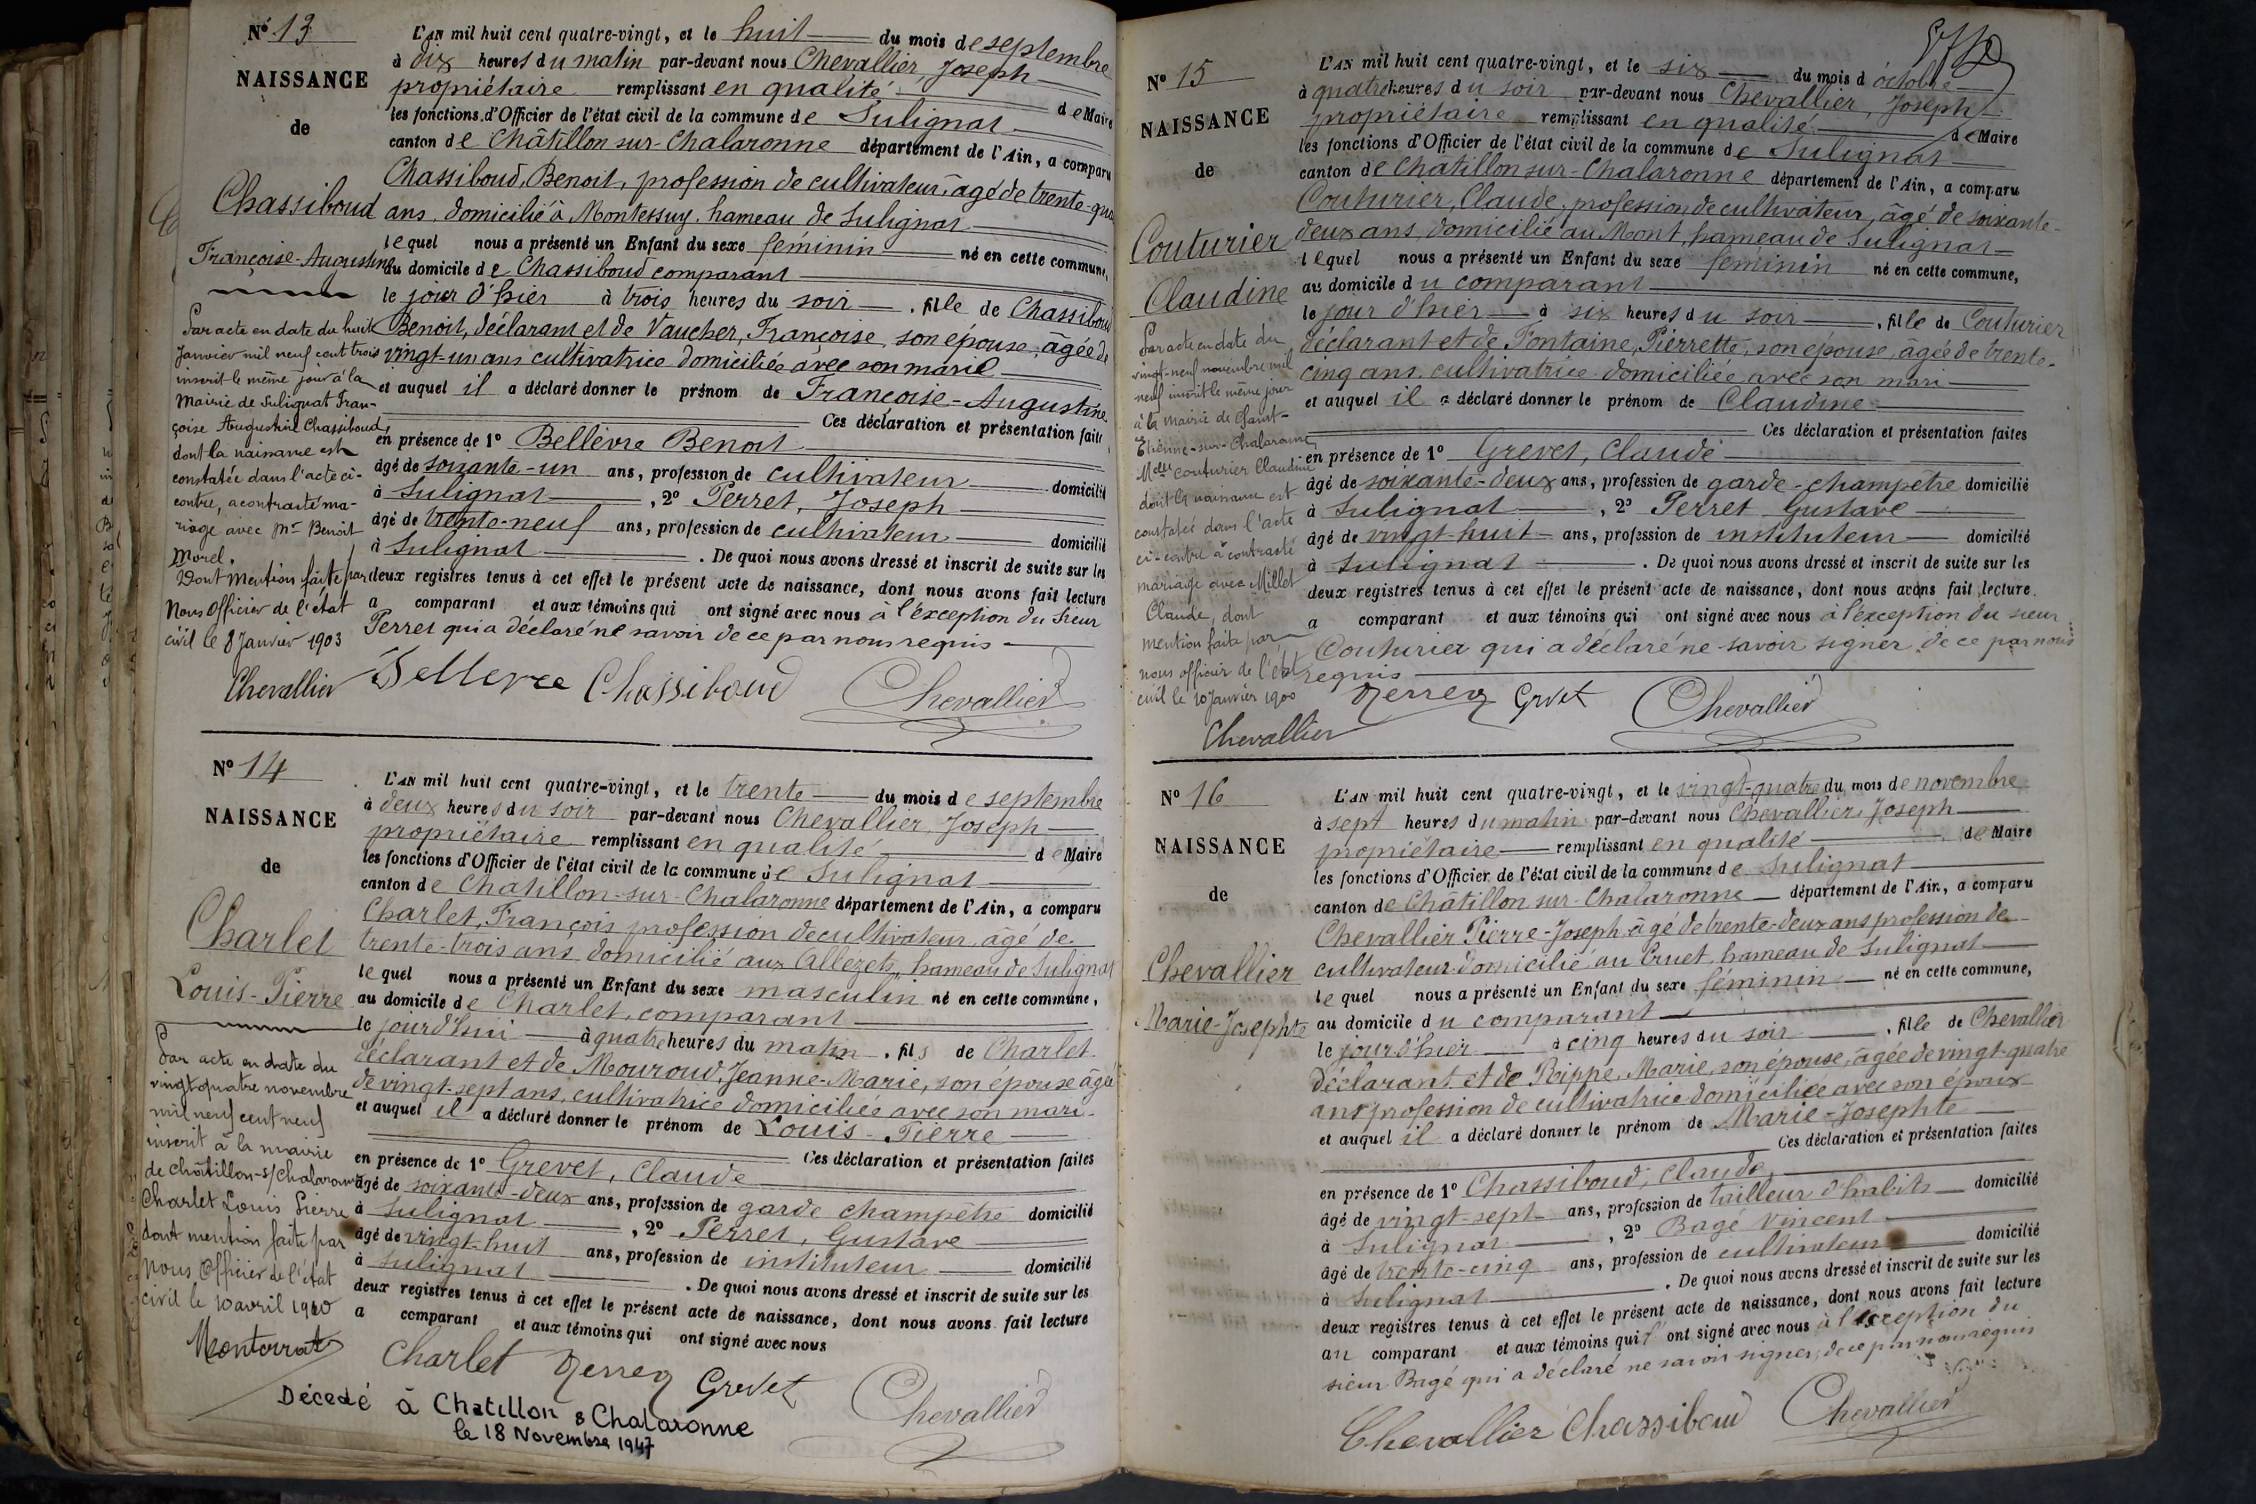 Nº 13
NAISSANCE
de
Chassiboud
Françoise-Augustine
Par acte en date du huit
Janvier mil neuf cent trois
inscrit le même jour à la
Mairie de Sulignat Fran-
çoise Augustine Chassiboud
dont la naissance est
constatée dans l'acte ci-
contre, a contracté ma-
riage avec Mr Benoit
Morel.
Dont mention faite par
Nous Officier de l'état
civil le 8 Janvier 1903
Chevallier
L'AN mil huit cent quatre-vingt, et le huit du mois de septembre
à dix heures du matin par-devant nous Chevallier, Joseph
propriétaire remplissant en qualité de Maire
les fonctions d'Officier de l'état civil de la commune de Sulignat
canton de Châtillon sur-Chalaronne département de l'Ain, a comparu
Chassiboud, Benoit, profession de cultivateur, âgé de trente-qua
ans, domicilié à Montessuy, hameau de Sulignat
lequel nous a présenté un Enfant du sexe féminin né en cette commune,
au domicile de Chassiboud comparant
le jour d'hier à trois heures du soir, fille de Chassiboud
Benoit, déclarant et de Vaucher, Françoise, son épouse, âgée de
vingt-un ans cultivatrice domiciliée avec son marie
et auquel il a déclaré donner le prénom de Françoise-Augustine
Ces déclaration et présentation faites
en présence de 1º Bellèvre Benoit
âgé de soixante-un ans, profession de cultivateur domicilié
à Sulignat, 2º Perret, Joseph
âgé de trente-neuf ans, profession de cultivateur domicilié
à Sulignat. De quoi nous avons dressé et inscrit de suite sur les
deux registres tenus à cet effet le présent acte de naissance, dont nous avons fait lecture
a comparant et aux témoins qui ont signé avec nous à l'exception du Sieur
Perret qui a déclaré ne savoir de ce par nous requis
Bellevre Chassiboud Chevallier
Nº 14
NAISSANCE
de
Charlet
Louis-Pierre
Par acte en date du
vingt quatre novembre
mil neuf cent neuf
inscrit à la mairie
de Châtillon-s/Chalaronne
Charlet Louis Pierre
dont mention faite par
Nous Officier de l'état
civil le 10 avril 1910
Monterrat
L'AN mil huit cent quatre-vingt, et le trente du mois de septembre
à deux heures du soir par-devant nous Chevallier, Joseph
propriétaire remplissant en qualité de Maire
les fonctions d'Officier de l'état civil de la commune de Sulignat
canton de Chatillon-sur-Chalaronne département de l'Ain, a comparu
Charlet, François profession de cultivateur, âgé de
trente-trois ans domicilié aux Allezets, hameau de Sulignat
lequel nous a présenté un Enfant du sexe masculin né en cette commune,
au domicile de Charlet, comparant
le jourd'hui à quatre heures du matin, fils de Charlet
déclarant et de Mouroud, Jeanne-Marie, son épouse âgée
de vingt-sept ans, cultivatrice domiciliée avec son mari
et auquel il a déclaré donner le prénom de Louis-Pierre
Ces déclaration et présentation faites
en présence de 1º Grevet, Claude
âgé de soixante-deux ans, profession de garde champêtre domicilié
à Sulignat, 2º Perret, Gustave
âgé de vingt-huit ans, profession de instituteur domicilié
à Sulignat. De quoi nous avons dressé et inscrit de suite sur les
deux registres tenus à cet effet le présent acte de naissance, dont nous avons fait lecture
a comparant et aux témoins qui ont signé avec nous
Charlet Perret Grevet Chevallier
Décedé à Chatillon s Chalaronne
le 18 Novembre 1947
Nº 15
NAISSANCE
de
Couturier
Claudine
Par acte en date du
vingt-neuf novembre mil
neuf inscrit le même jour
à la mairie de Saint-
Etienne-sur-Chalaronne,
Melle Couturier Claudine
dont la naissance est
constatée dans l'acte
ci-contre a contracté
mariage avec Millet
Claude, dont
mention faite par
nous officier de l'état
civil le 10 Janvier 1900
Chevallier
L'AN mil huit cent quatre-vingt, et le six du mois d'octobre
à quatre heures du soir par-devant nous Chevallier, Joseph
propriétaire remplissant en qualité de Maire
les fonctions d'Officier de l'état civil de la commune de Sulignat
canton de Châtillon sur-Chalaronne département de l'Ain, a comparu
Couturier, Claude, profession de cultivateur, âgé de soixante-
deux ans, domicilié au Mont, hameau de Sulignat
lequel nous a présenté un Enfant du sexe féminin né en cette commune,
au domicile du comparant
le jour d'hier à six heures du soir, fille de Couturier
déclarant et de Fontaine, Pierrette, son épouse, âgée de trente-
cinq ans, cultivatrice domiciliée avec son mari
et auquel il a déclaré donner le prénom de Claudine
Ces déclaration et présentation faites
en présence de 1º Grevet, Claude
âgé de soixante-deux ans, profession de garde-champêtre domicilié
à Sulignat, 2º Perret Gustave
âgé de vingt-huit ans, profession de instituteur domicilié
à Sulignat. De quoi nous avons dressé et inscrit de suite sur les
deux registres tenus à cet effet le présent acte de naissance, dont nous avons fait lecture
a comparant et aux témoins qui ont signé avec nous à l'exception du sieur
Couturier qui a déclaré ne savoir signer de ce par nous
requis
Perret Grevet Chevallier
Nº 16
NAISSANCE
de
Chevallier
Marie-Josephte
L'AN mil huit cent quatre-vingt, et le vingt-quatre du mois de novembre
à sept heures du matin par-devant nous Chevallier, Joseph
propriétaire remplissant en qualité de Maire
les fonctions d'Officier de l'état civil de la commune de Sulignat
canton de Châtillon sur-Chalaronne département de l'Ain, a comparu
Chevallier Pierre-Joseph, âgé de trente-deux ans profession de
cultivateur domicilié au Cruet, hameau de Sulignat
lequel nous a présenté un Enfant du sexe féminin né en cette commune,
au domicile du comparant
le jour d'hier à cinq heures du soir, fille de Chevallier
déclarant et de Rippe, Marie, son épouse, âgée de vingt-quatre
ans profession de cultivatrice domiciliée avec son époux
et auquel il a déclaré donner le prénom de Marie-Josephte
Ces déclaration et présentation faites
en présence de 1º Chassiboud, Claude
âgé de vingt-sept ans, profession de tailleur d'habits domicilié
à Sulignat, 2º Bagé Vincent
âgé de trente-cinq ans, profession de cultivateur domicilié
à Sulignat. De quoi nous avons dressé et inscrit de suite sur les
deux registres tenus à cet effet le présent acte de naissance, dont nous avons fait lecture
au comparant et aux témoins qui ont signé avec nous à l'exception du
sieur Bagé qui a déclaré ne savoir signer, de ce par nous requis
Chevallier Chassiboud Chevallier